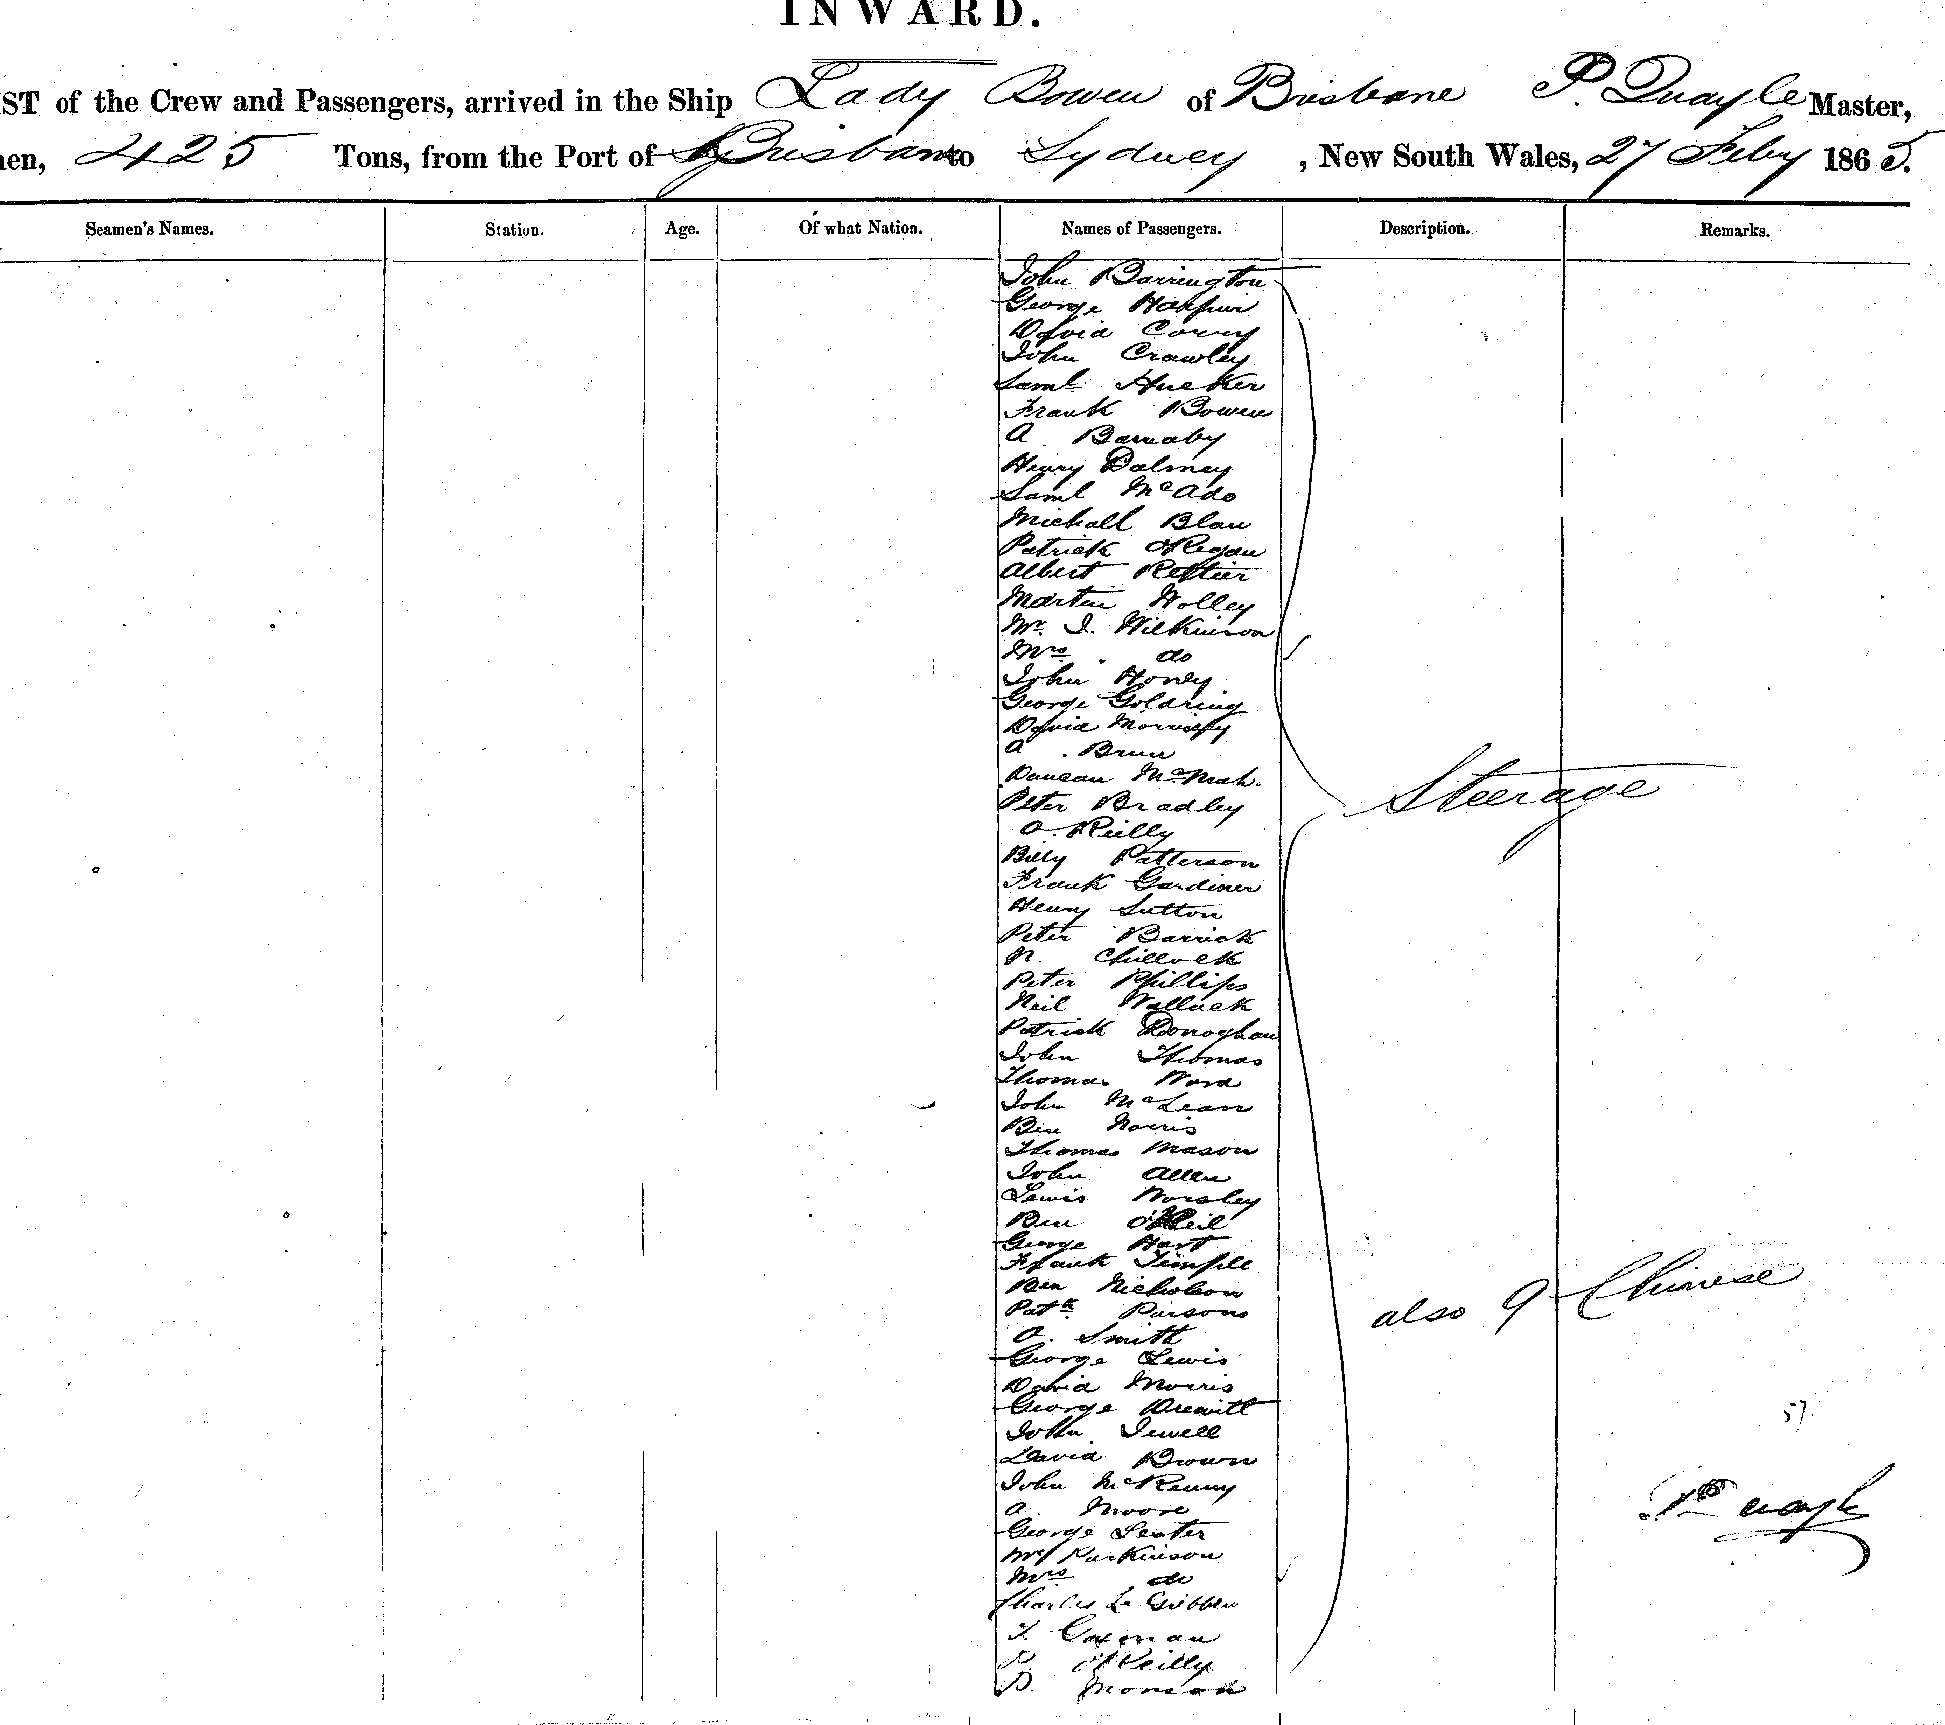 INWARD.
IST of the Crew and Passengers, arrived in the Ship Lady Bowen of Brisbane P. Quayle Master,
nen, 425 Tons, from the Port of Brisbane to Sydney, New South Wales, 27 Feby 1865.
Seamen's Names. Station. Age. Of what Nation. Names of Passengers. Description. Remarks.
John Barrington
George
David
John Crawley
Saml Hucker
Frank Bowen
A Barnaby
Henry Dalmey
Saml McAdo
Michall Blau
Patrick O'Regan
Albert
Martin Wolley
Mr. J. Wilkinson
Mrs do
John Honey
George Goldring
David
A. Brun
Duncan
Peter Bradley
Steerage
O. Reilly
Billy Patterson
Frank Gardiner
Henry Sutton
Peter Barrick
Chillock
Peter Phillips
Neil Wallack
Patrick Donoghau
John Thomas
Thomas Ward
John McLean
Ben Norris
Thomas Mason
John Allen
Lewis Worsley
Ben O'Neil
George Hart
Frank Timpile
Ben Nicholson
also 9 Chinese
Patk Parsons
A. Smith
George Lewis
David Morris
George Drewitt
57
John Jewell
David Brown
John McKenny
P Quayle
A. Moore
George
Mr Parkinson
Mrs do
Charles Le Gibben
T. Coxman
O'Reilly
D.